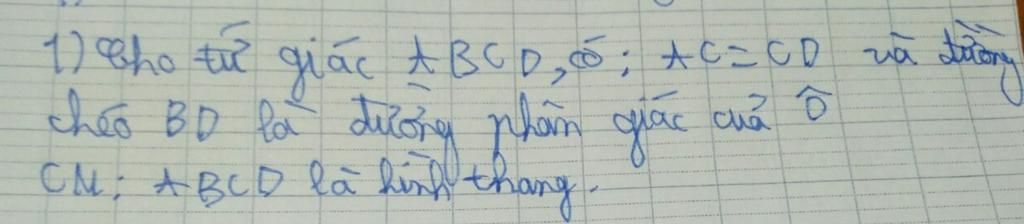 1) Cho tứ giác ABCD, có; AC = CD và đường
chéo BD là đường phân giác của Ô
CM: ABCD là hình thang.